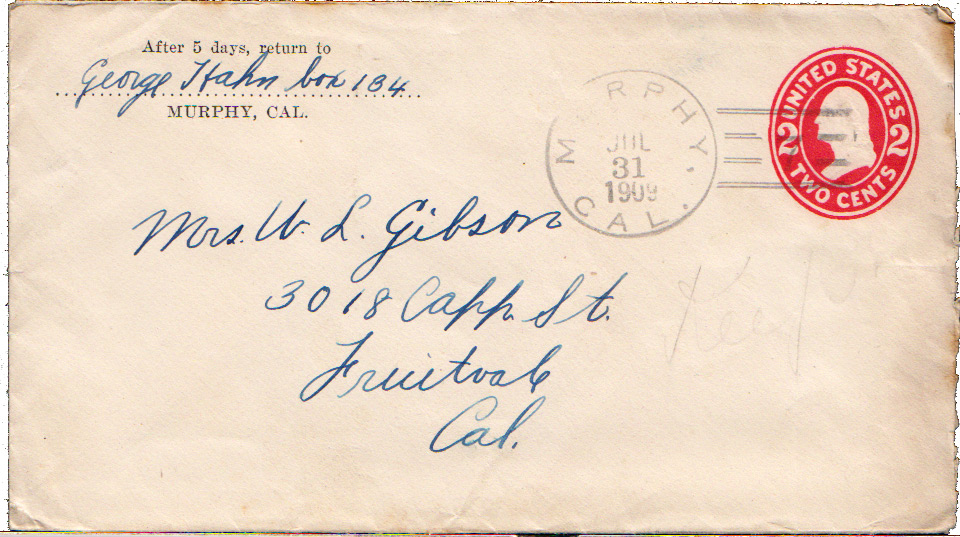 After 5 days, return to
George Hahn box 134
MURPHY, CAL.
MURPHY, CAL.
JUL
31
1909
UNITED STATES
2 2
TWO CENTS
Mrs. W. L. Gibson
3018 Capp. St.
Fruitvale
Cal.
Keep